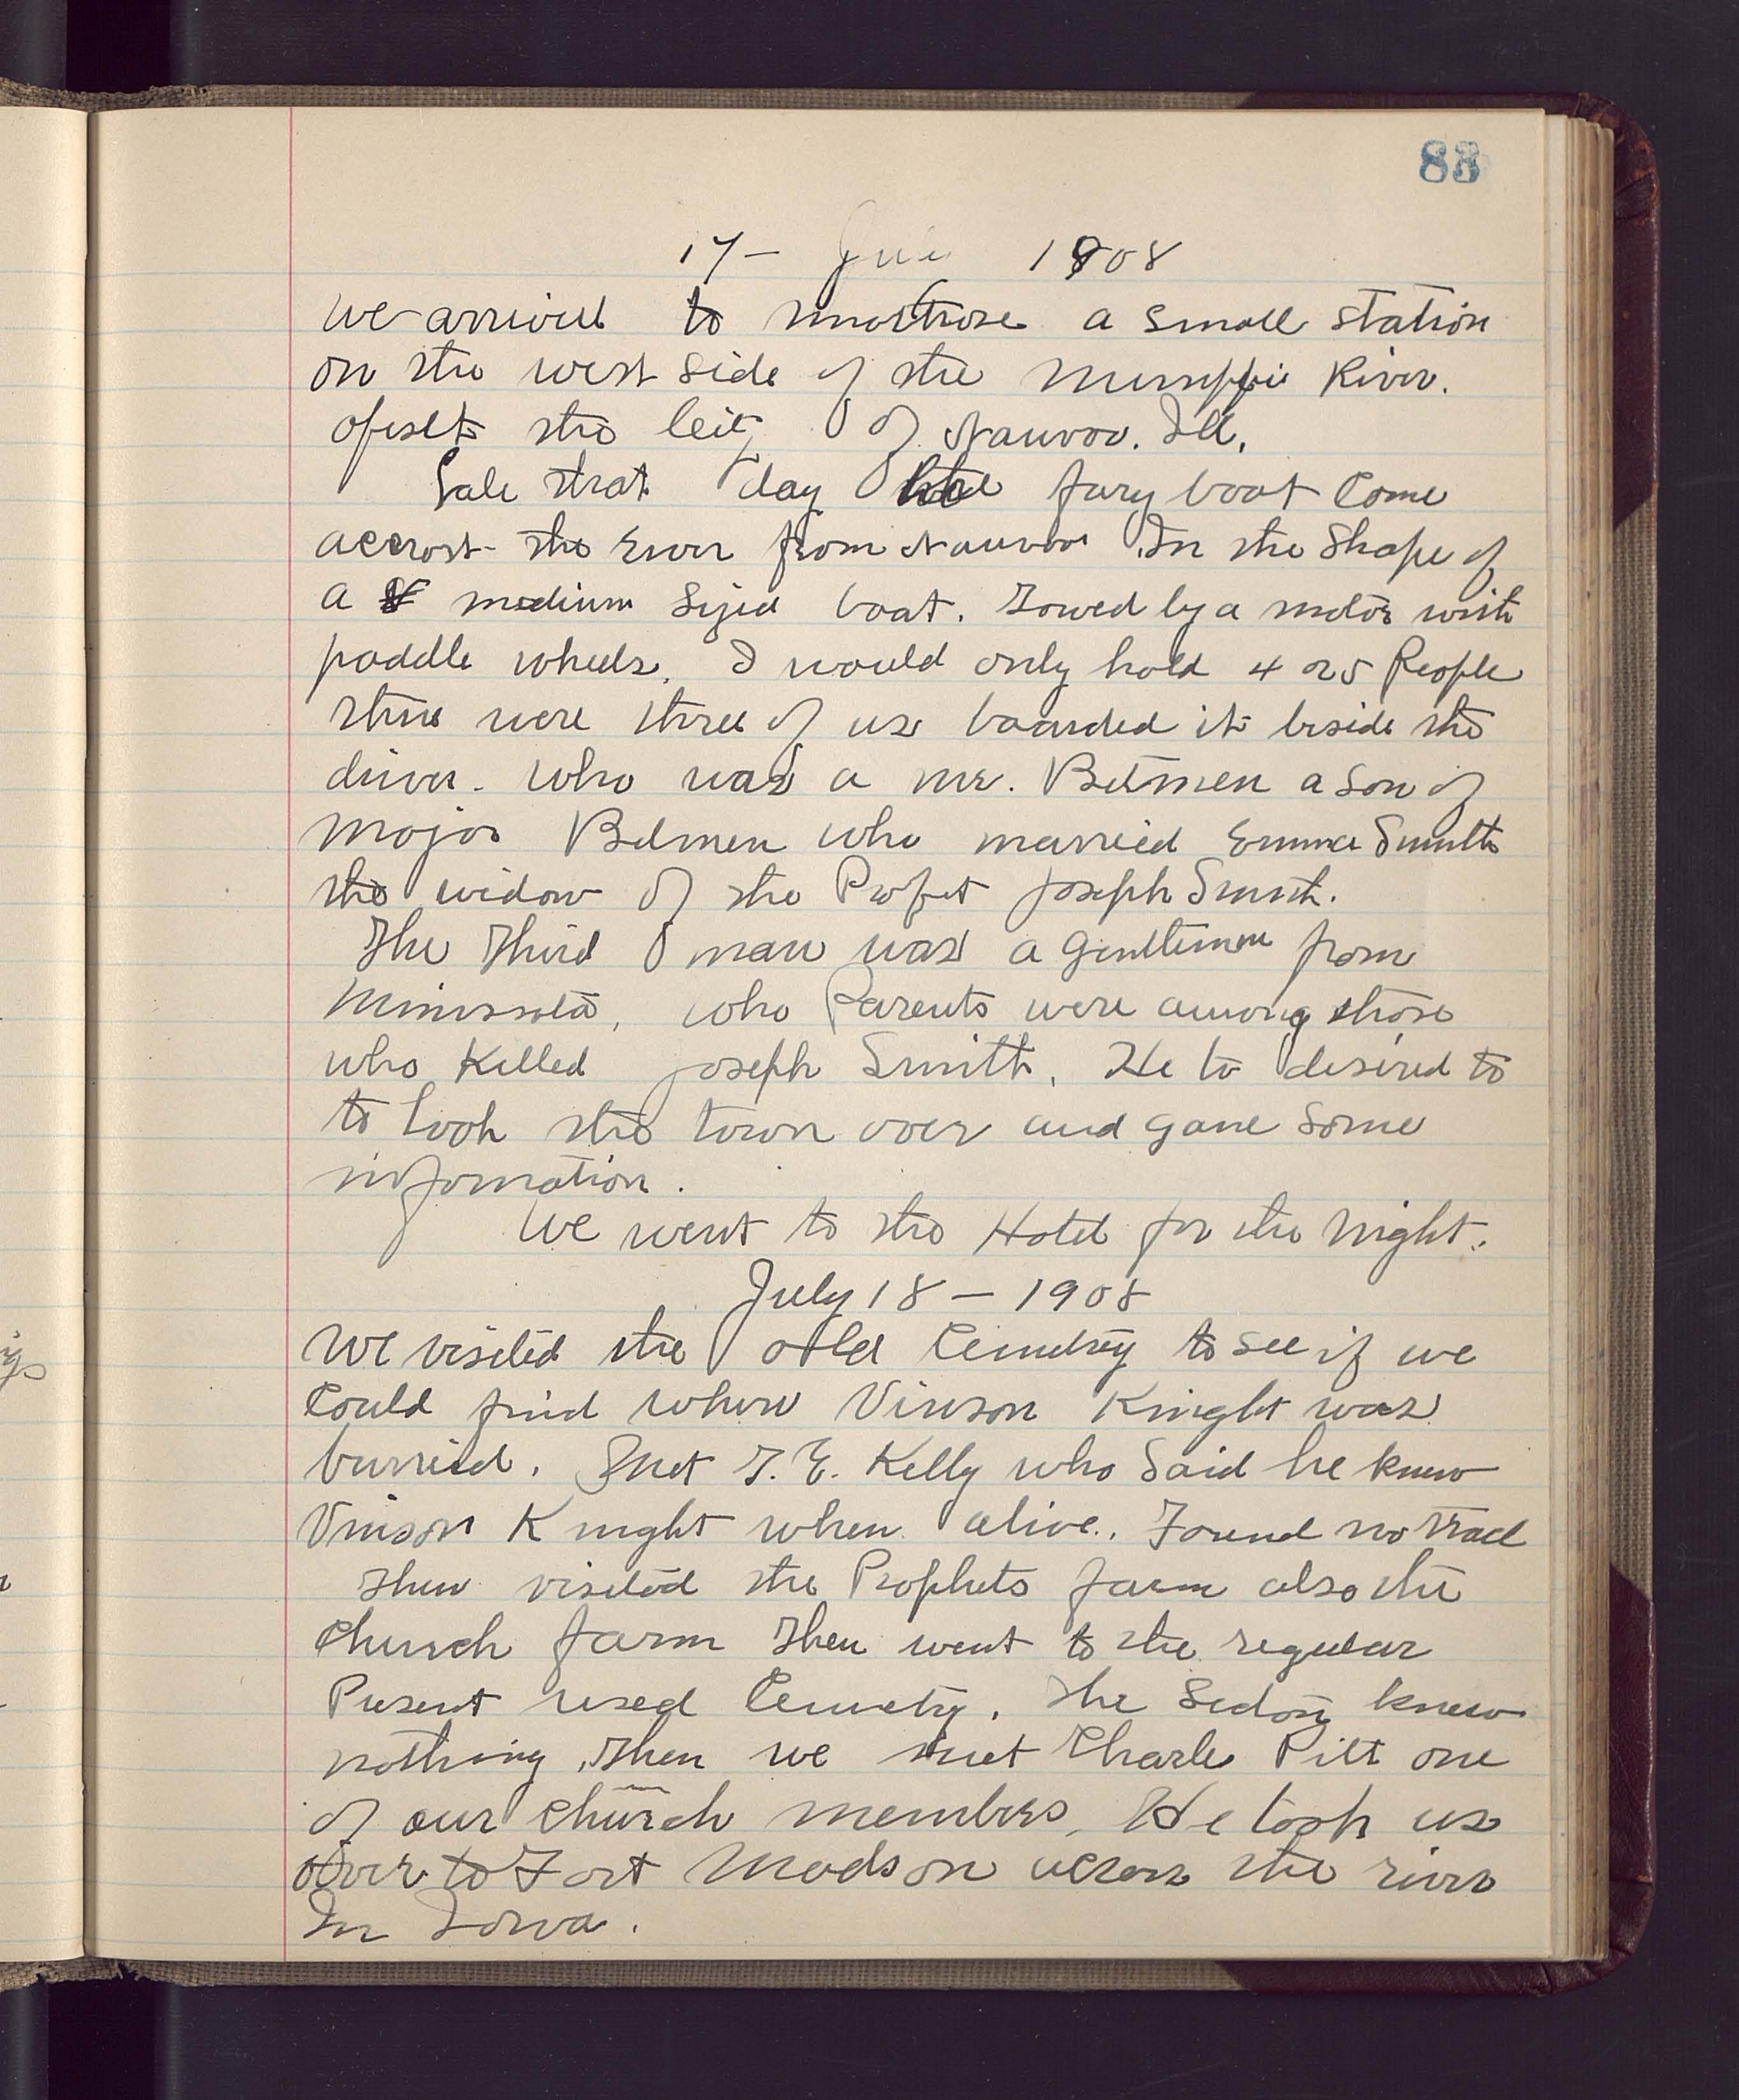 83
17 - July 1908
we arrived to montrose a small station
on the west side of the Mississippi River.
opisit the City of Nauvoo. Ill.
Late that day the fary boat Come
accrost the River from Nauvoo In the Shape of
a medium Sized boat. Towed by a motor with
paddle wheels. I would only hold 4 or 5 People
there were three of us boarded it beside the
driver. who was a mr. Bidmen a Son of
Major Bidmen who married Emma Smith
the widow of the Profet Joseph Smith.
The Third man was a Gentlemen from
Minissota, who Parents were among those
who Killed Joseph Smith. He to desired to
to Look the town over and gane Some
information.
We went to the Hotel for the Night.
July 18 - 1908
We visited the old Cemetry to See if we
Could find where Vinson Knight was
burried. met T. E. Kelly who Said he knew
Vinson Knight when alive. Found no trace
Then visited the Prophets farm also the
Church farm Then went to the regular
Present used Cemetry. The Sedxy knew
nothing. Then we met Charls Pitt one
of our Church members. He took us
over to Fort Madson across the river
In Iowa.